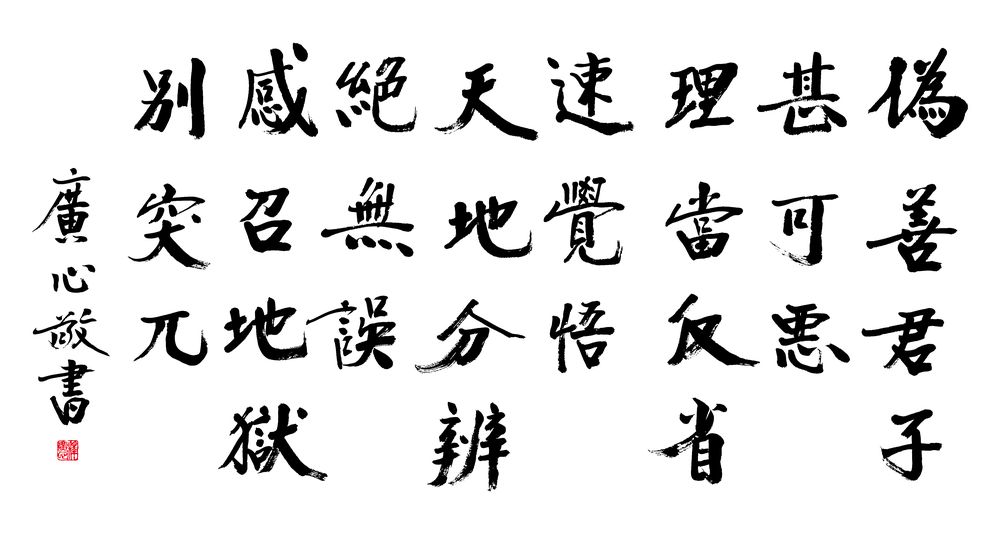 偽善君子
甚可悪
理當反省
速覺悟
天地分辨
絶無誤
感召地獄
別突兀
廣心敬書